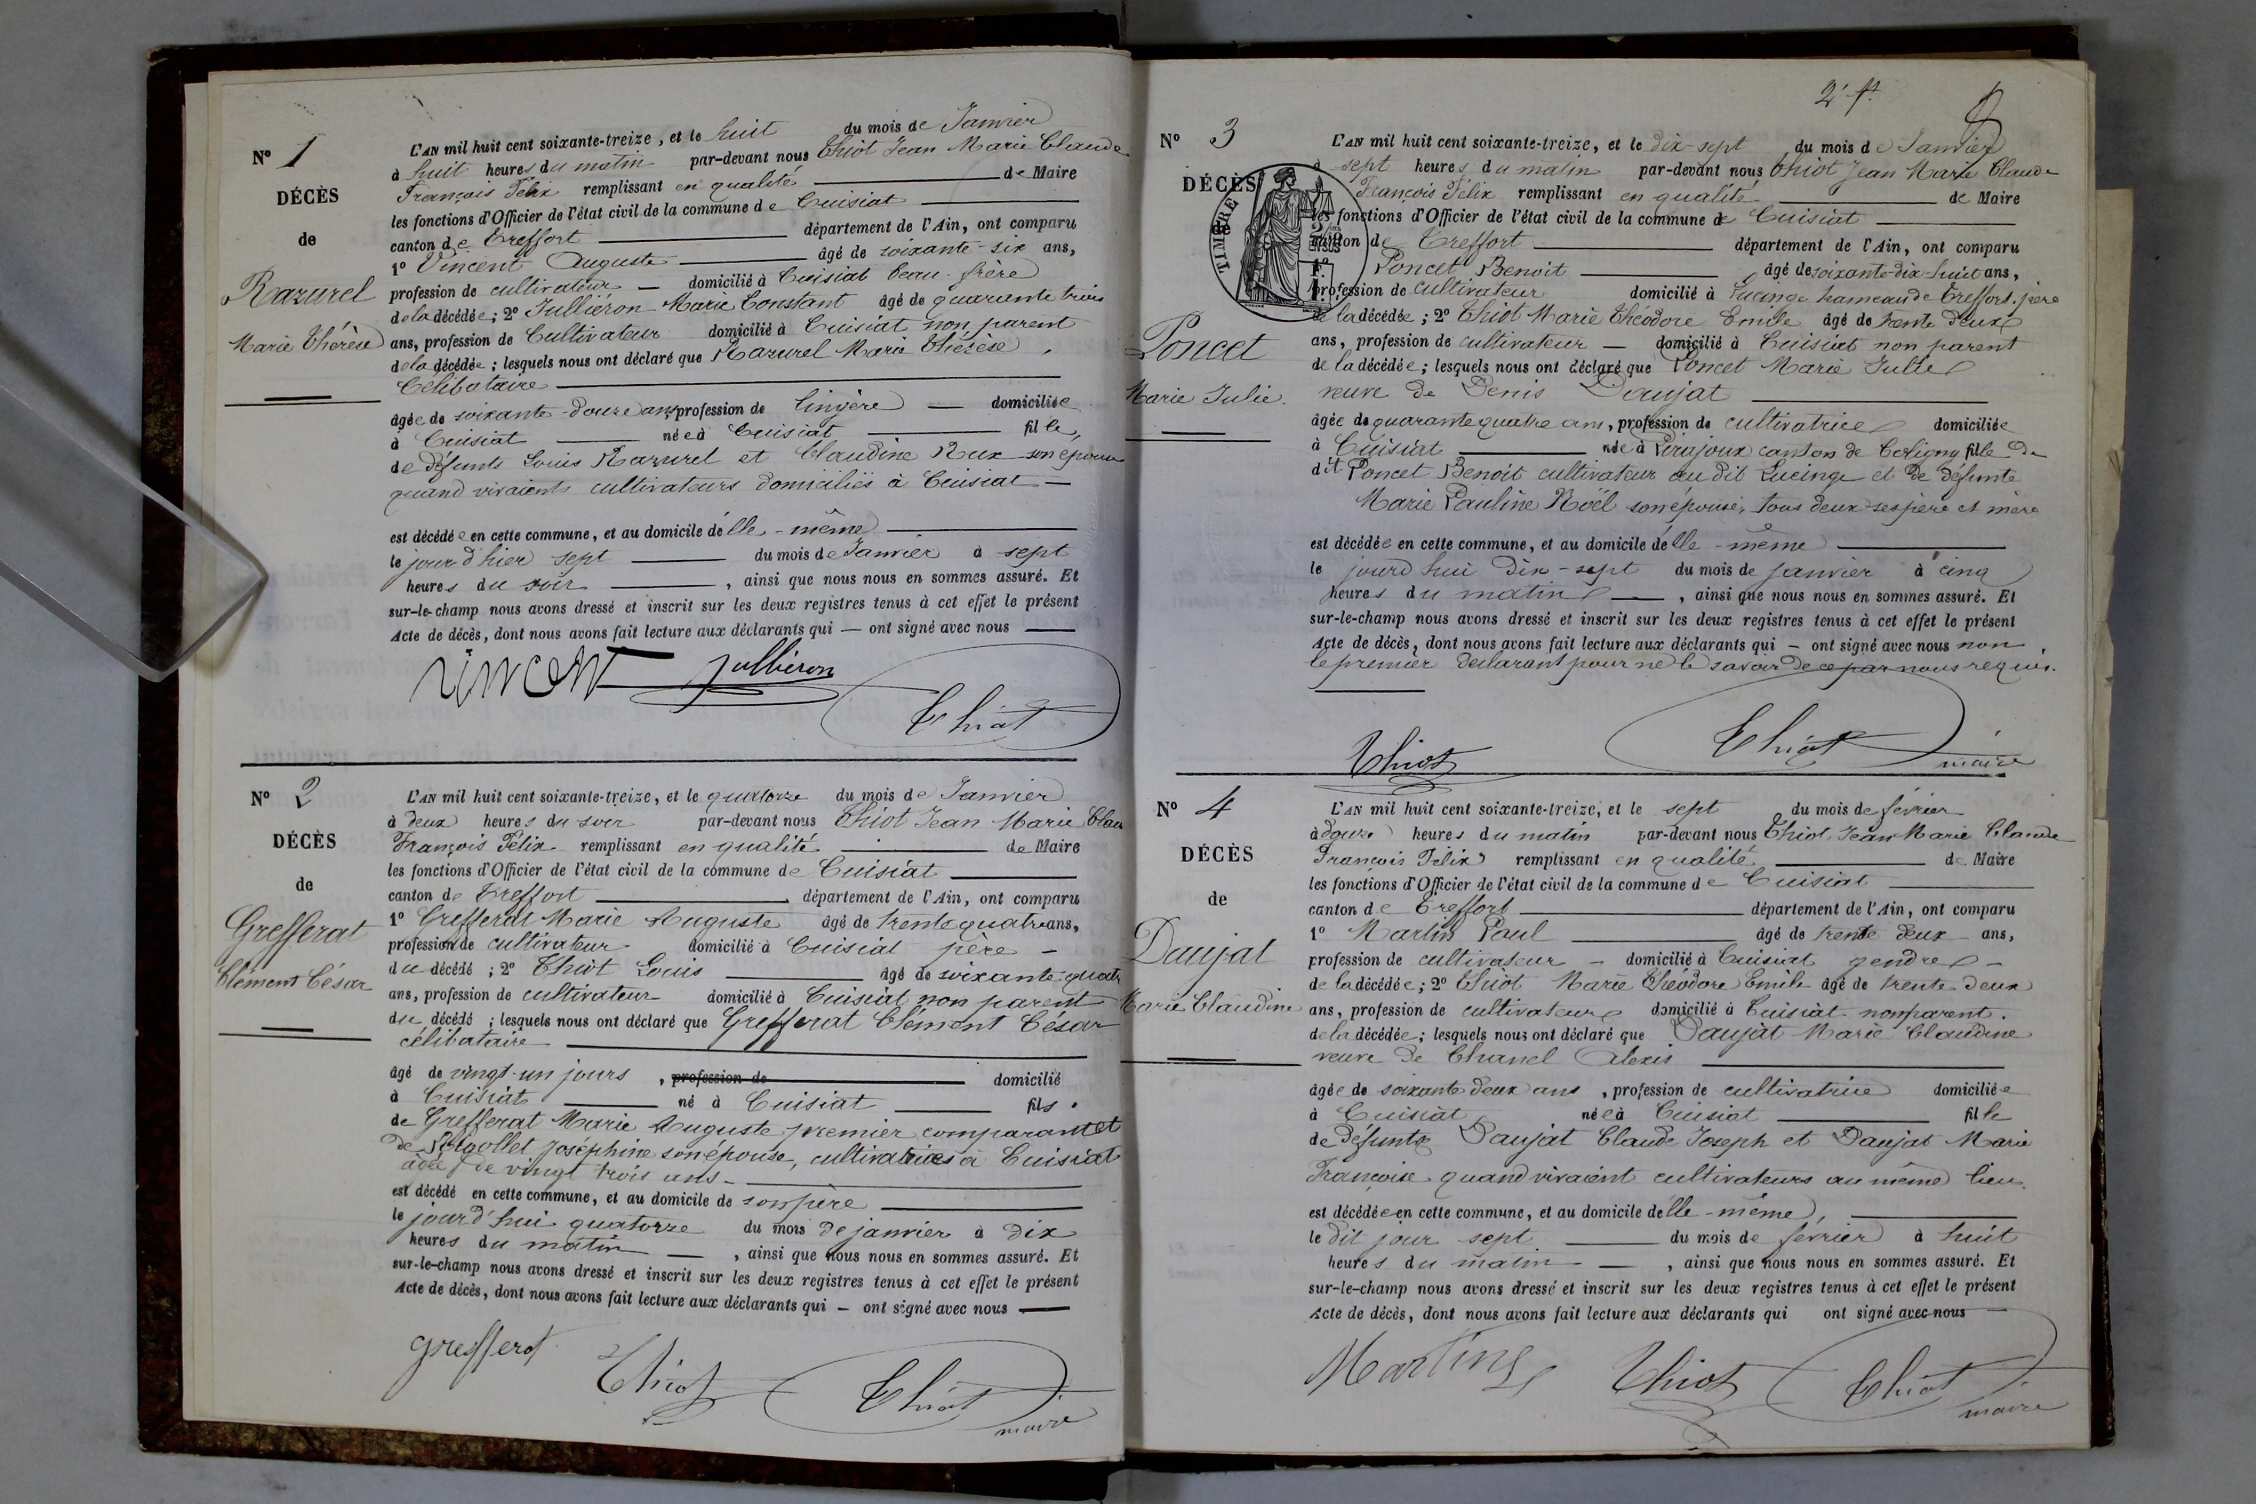 N° 1
DÉCÈS
de
Razurel
Marie Thérèse
L'AN mil huit cent soixante-treize, et le huit du mois de Janvier
à huit heures du matin par-devant nous Thiot Jean Marie Claude
François Félix remplissant en qualité de Maire
les fonctions d'Officier de l'état civil de la commune de Cuisiat
canton de Treffort département de l'Ain, ont comparu
1° Vincent Auguste âgé de soixante-six ans,
profession de cultivateur domicilié à Cuisiat beau-frère
de la décédée; 2° Julliéron Marie Constant âgé de quarante trois
ans, profession de Cultivateur domicilié à Cuisiat non parent
de la décédée; lesquels nous ont déclaré que Razurel Marie Thérèse,
Célibataire
âgée de soixante-douze ans, profession de lingère domiciliée
à Cuisiat née à Cuisiat fille,
de défunts Louis Razurel et Claudine Rux son épouse
quand vivaients cultivateurs domiciliés à Cuisiat
est décédée en cette commune, et au domicile d'elle-même
le jour d'hier sept du mois de Janvier à sept
heures du soir, ainsi que nous nous en sommes assuré. Et
sur-le-champ nous avons dressé et inscrit sur les deux registres tenus à cet effet le présent
Acte de décès, dont nous avons fait lecture aux déclarants qui — ont signé avec nous
Vincent Julliéron Thiot
N° 2
DÉCÈS
de
Grefferat
Clément César
L'AN mil huit cent soixante-treize, et le quatorze du mois de Janvier
à deux heures du soir par-devant nous Thiot Jean Marie Clau
François Félix remplissant en qualité de Maire
les fonctions d'Officier de l'état civil de la commune de Cuisiat
canton de Treffort département de l'Ain, ont comparu
1° Grefferat Marie Auguste âgé de trente quatre ans,
profession de cultivateur domicilié à Cuisiat père
du décédé; 2° Thiot Louis âgé de soixante-quatre
ans, profession de cultivateur domicilié à Cuisiat non parent
du décédé; lesquels nous ont déclaré que Grefferat Clément César
célibataire
âgé de vingt-un jours, profession de domicilié
à Cuisiat né à Cuisiat fils.
de Grefferat Marie Auguste premier comparant et
de Joséphine son épouse, cultivatrices à Cuisiat
âgée de vingt trois ans
est décédé en cette commune, et au domicile de son père
le jourd'hui quatorze du mois de janvier à dix
heures du matin, ainsi que nous nous en sommes assuré. Et
sur-le-champ nous avons dressé et inscrit sur les deux registres tenus à cet effet le présent
Acte de décès, dont nous avons fait lecture aux déclarants qui — ont signé avec nous
Grefferat Thiot Thiot
maire
2e ft.
N° 3
DÉCÈS
TIMBRE
Poncet
Marie Julie.
L'AN mil huit cent soixante-treize, et le dix-sept du mois de Janvier
à sept heures du matin par-devant nous Thiot Jean Marie Claude
François Félix remplissant en qualité de Maire
les fonctions d'Officier de l'état civil de la commune de Cuisiat
canton de Treffort département de l'Ain, ont comparu
1° Poncet Benoit âgé de soixante-dix-huit ans,
profession de cultivateur domicilié à Lucinge hameau de Treffort, père
de la décédée; 2° Thiot Marie Théodore Emile âgé de trente deux
ans, profession de cultivateur — domicilié à Cuisiat non parent
de la décédée; lesquels nous ont déclaré que Poncet Marie Julie
veuve de Denis Daujat
âgée de quarante quatre ans, profession de cultivatrice domiciliée
à Cuisiat née à Pirajoux canton de Coligny fille du
dit Poncet Benoit cultivateur au dit Lucinge et de défunte
Marie Pauline Noël son épouse, tous deux ses père et mère
est décédée en cette commune, et au domicile d'elle-même
le jourd'hui dix-sept du mois de janvier à cinq
heures du matin, ainsi que nous nous en sommes assuré. Et
sur-le-champ nous avons dressé et inscrit sur les deux registres tenus à cet effet le présent
Acte de décès, dont nous avons fait lecture aux déclarants qui — ont signé avec nous non
le premier declarant pour ne le savoir de ce par nous requis.
Thiot Thiot
maire
N° 4
DÉCÈS
de
Daujat
Marie Claudine
L'AN mil huit cent soixante-treize, et le sept du mois de février
à douze heures du matin par-devant nous Thiot Jean Marie Claude
François Félix remplissant en qualité de Maire
les fonctions d'Officier de l'état civil de la commune de Cuisiat
canton de Treffort département de l'Ain, ont comparu
1° Martin Paul âgé de trente deux ans,
profession de cultivateur — domicilié à Cuisiat gendre —
de la décédée; 2° Thiot Marie Théodore Emile âgé de trente deux
ans, profession de cultivateur domicilié à Cuisiat non parent.
de la décédée; lesquels nous ont déclaré que Daujat Marie Claudine
veuve de Chanel Alexis
âgée de soixante deux ans, profession de cultivatrice domiciliée
à Cuisiat née à Cuisiat fille
de défunts Daujat Claude Joseph et Daujat Marie
Françoise quand vivaient cultivateurs au même lieu.
est décédée en cette commune, et au domicile d'elle-même,
le dit jour sept du mois de février à huit
heures du matin, ainsi que nous nous en sommes assuré. Et
sur-le-champ nous avons dressé et inscrit sur les deux registres tenus à cet effet le présent
Acte de décès, dont nous avons fait lecture aux déclarants qui ont signé avec nous
Martin Thiot Thiot
maire